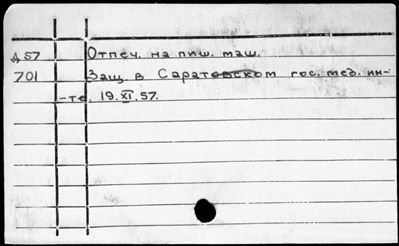 Д57 Отпеч. на пиш. маш.
701 Защ. в Саратовском гос. мед. ин-
-те, 19.XI.57.